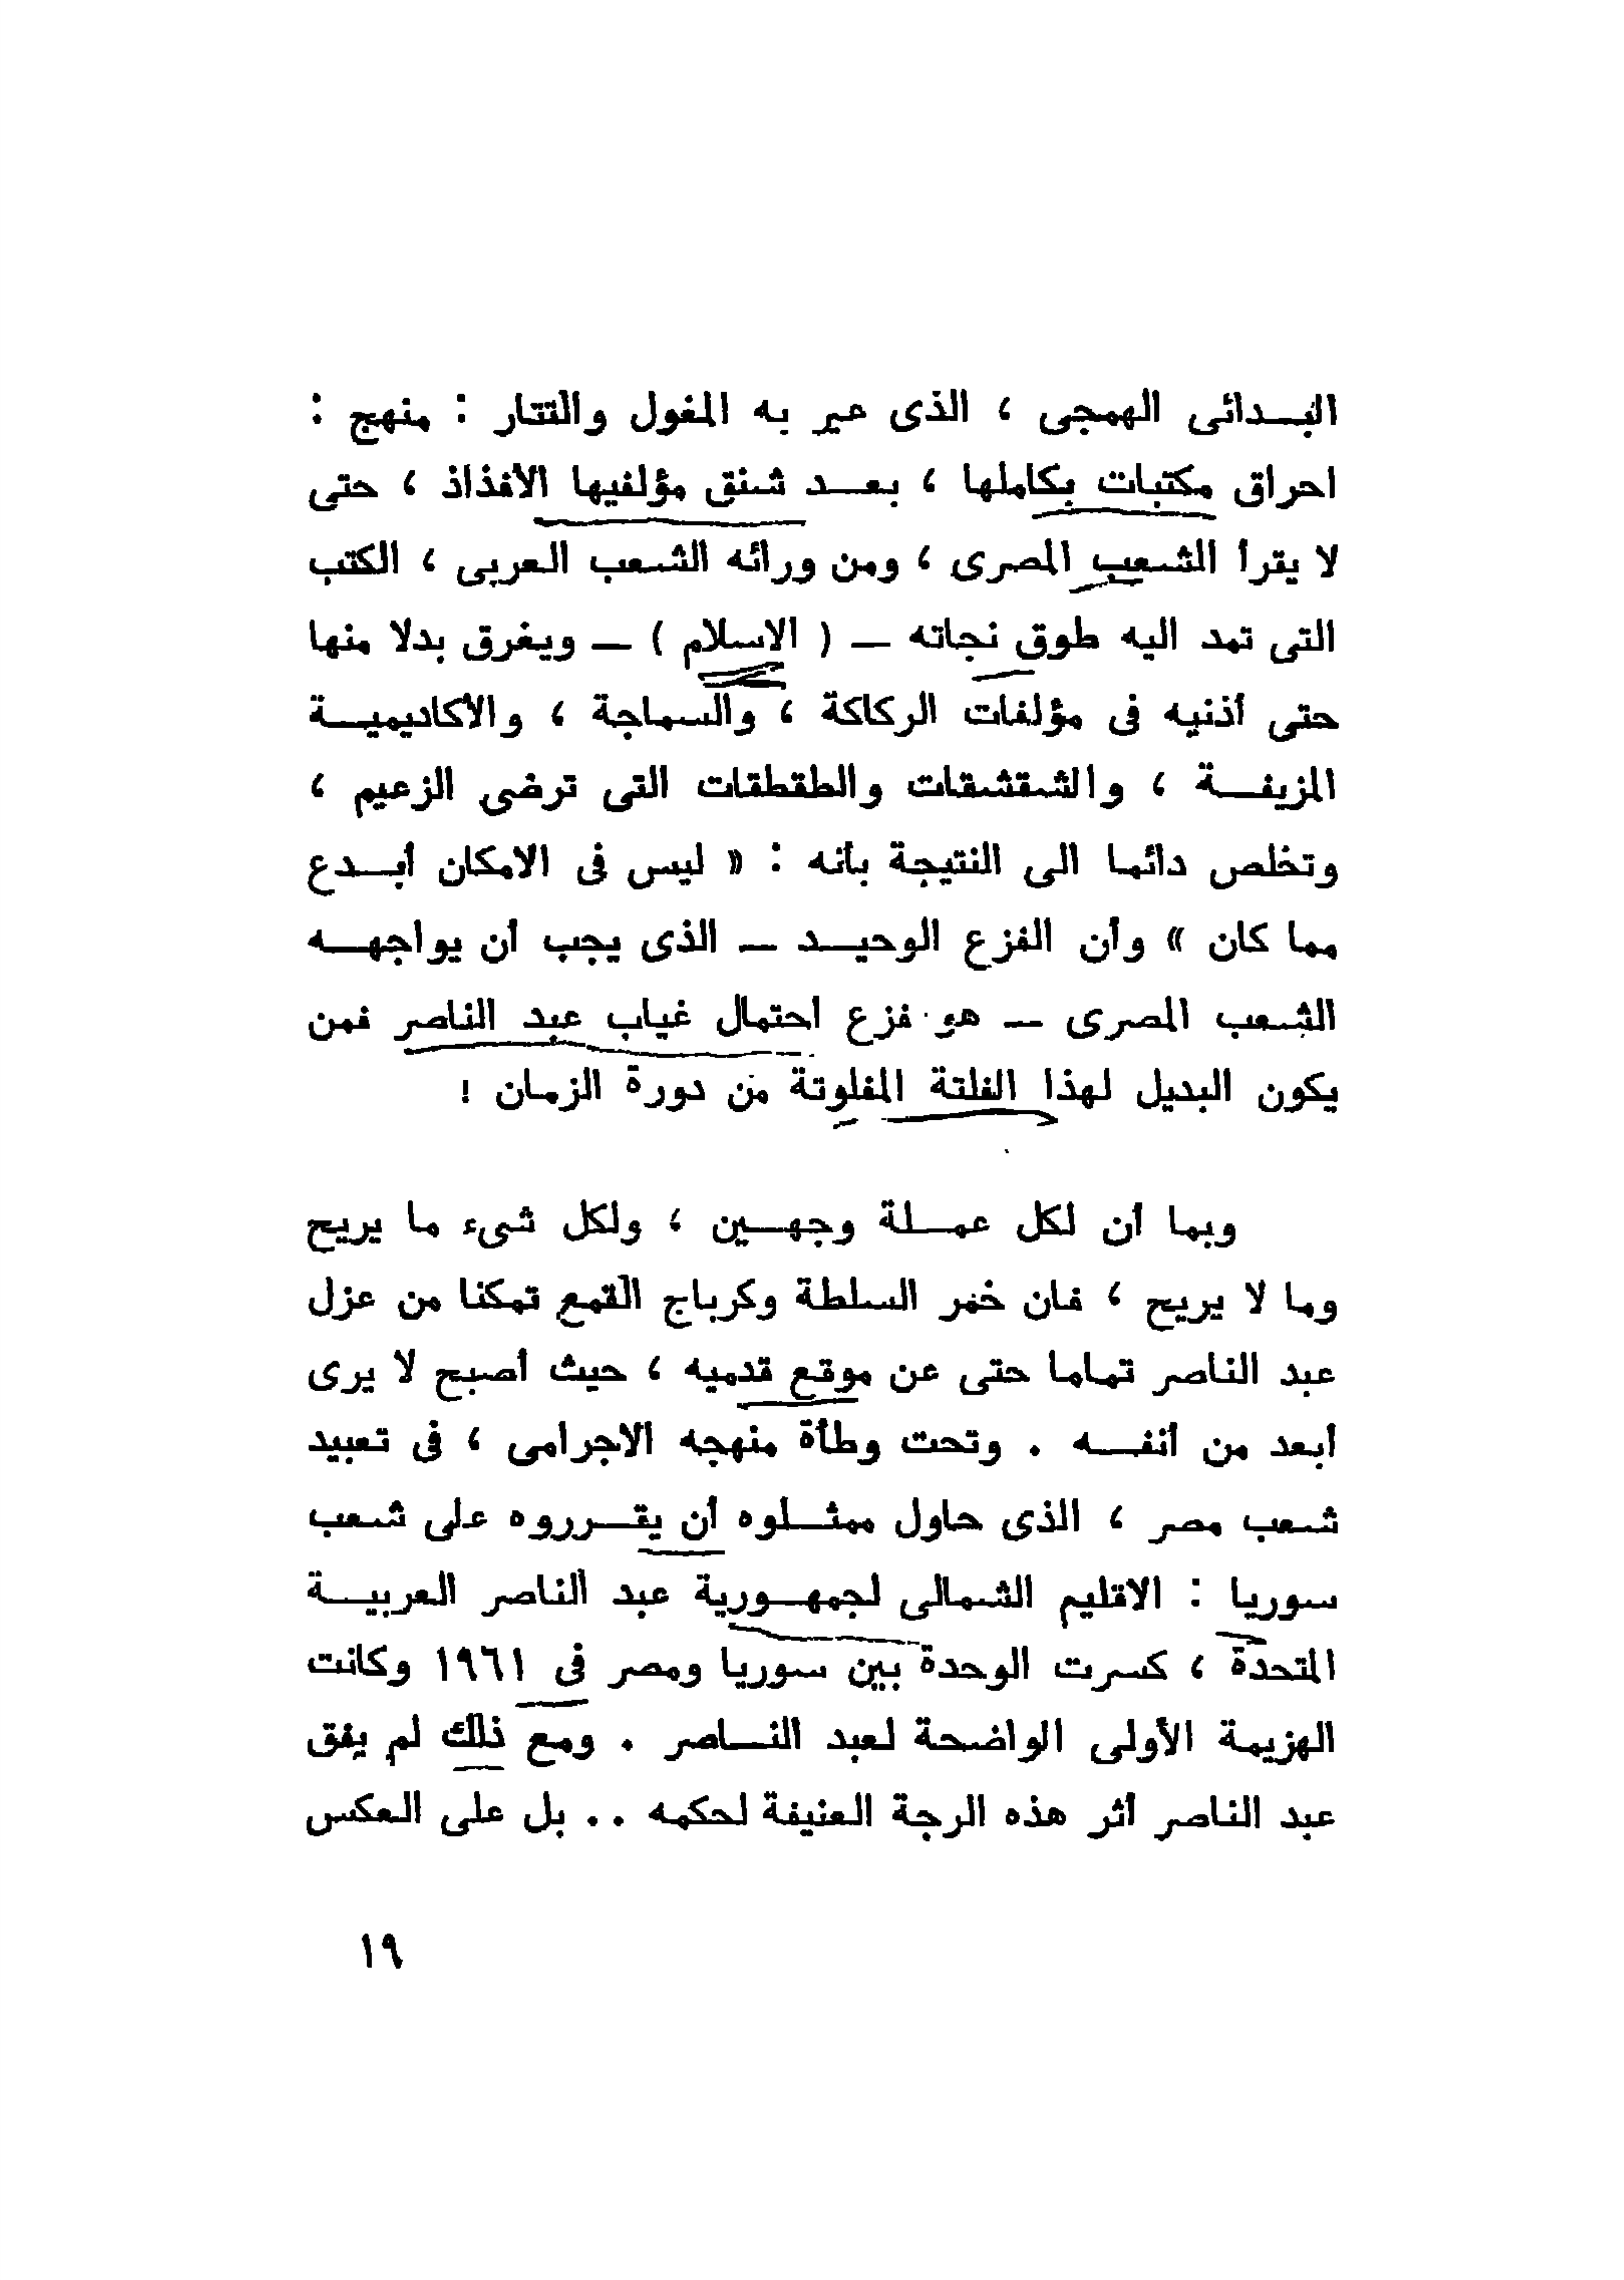 البـدائى الهمجى ، الذى عير به المغول والتتار : منهج :
احراق مكتبات بكاملها ، بعـد شنق مؤلفيها الأفذاذ ، حتى
لا يقرأ الشعب المصرى ، ومن ورائه الشعب العربى ، الكتب
التى تمد اليه طوق نجاته — ( الاسلام ) — ويغرق بدلا منها
حتى أذنيه فى مؤلفات الركاكة ، والسماجة ، والأكاديميـة
المزيفـة ، والشقشقات والطقطقات التى ترضى الزعيم ،
وتخلص دائما الى النتيجة بأنه : « ليس فى الامكان أبـدع
مما كان » وأن الفزع الوحيـد — الذى يجب أن يواجهـه
الشعب المصرى — هو فزع احتمال غياب عبد الناصر فمن
يكون البديل لهذا الفلتة المفلوتة من دورة الزمان !
وبما أن لكل عمـلة وجهـين ، ولكل شىء ما يريح
وما لا يريح ، فان خمر السلطة وكرباج القمع تمكنا من عزل
عبد الناصر تماما حتى عن موقع قدميه ، حيث أصبح لا يرى
أبعد من أنفـه . وتحت وطأة منهجه الاجرامى ، فى تعبيد
شعب مصر ، الذى حاول ممثـلوه أن يقـرروه على شعب
سوريا : الاقليم الشمالى لجمهـورية عبد الناصر العربيـة
المتحدة ، كسرت الوحدة بين سوريا ومصر فى ١٩٦١ وكانت
الهزيمة الأولى الواضحة لعبد النـاصر . ومع ذلك لم يفق
عبد الناصر أثر هذه الرجة العنيفة لحكمه .. بل على العكس
١٩